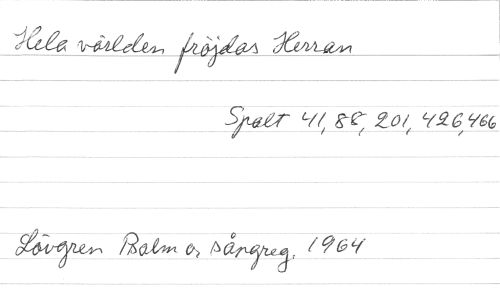 Hela världen fröjdas Herran
Spalt 41, 88, 201, 426, 466
Lövgren Psalm o. sångreg. 1964